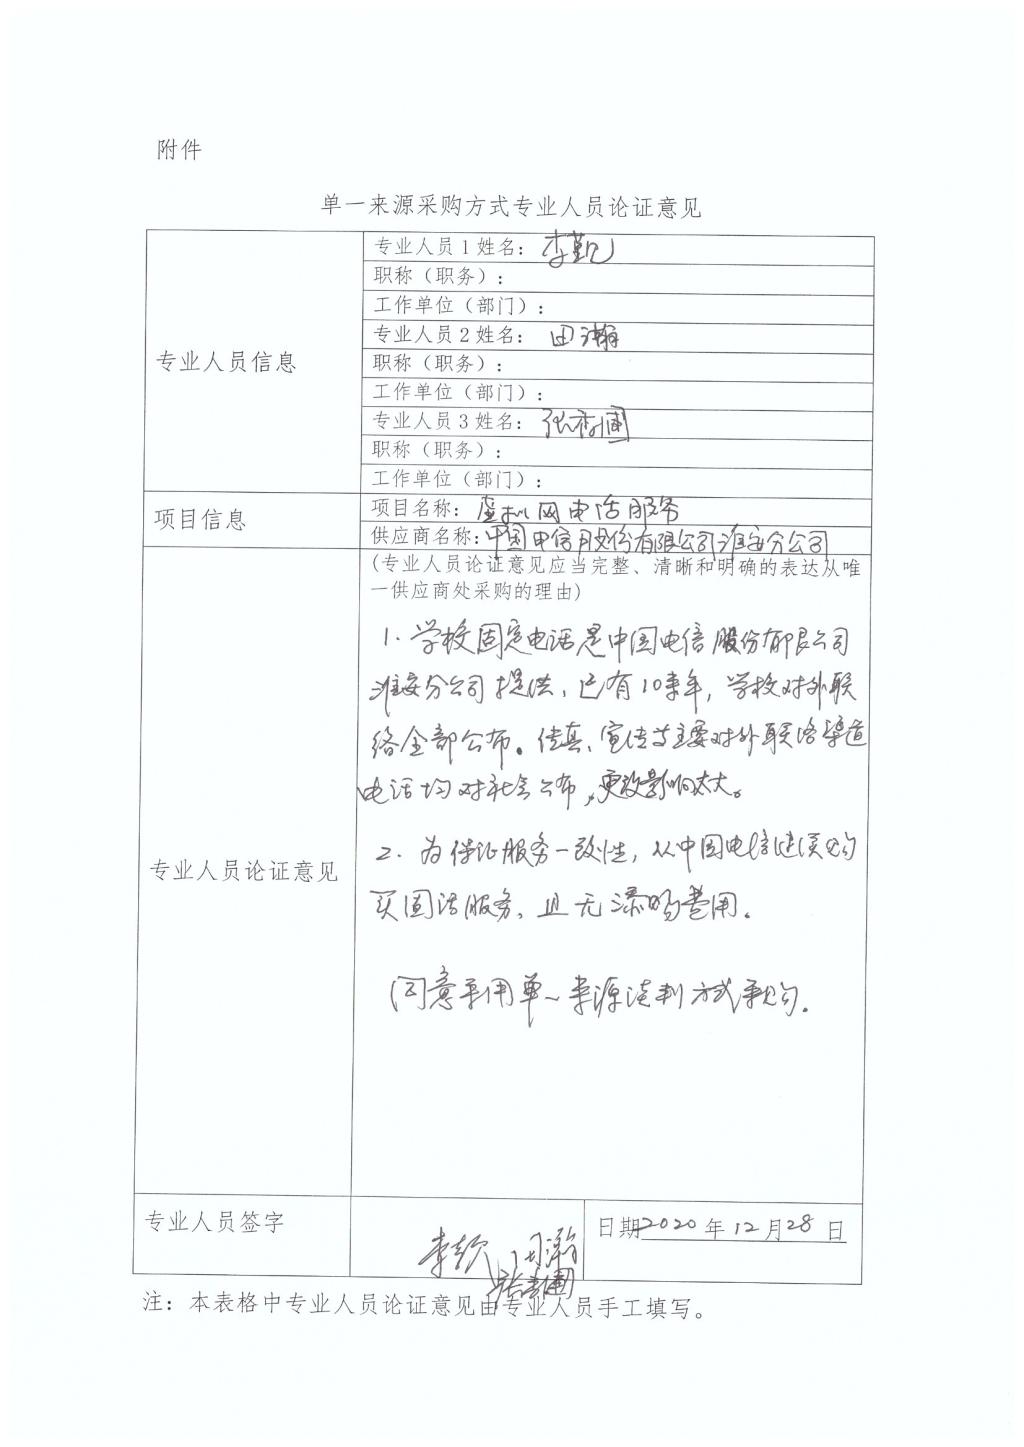 附件
单一来源采购方式专业人员论证意见
专业人员信息
专业人员1姓名：李
职称（职务）：
工作单位（部门）：
专业人员2姓名：田瀚
职称（职务）：
工作单位（部门）：
专业人员3姓名：张
职称（职务）：
工作单位（部门）：
项目信息
项目名称：虚拟网电话服务
供应商名称：中国电信股份有限公司淮安分公司
专业人员论证意见
(专业人员论证意见应当完整、清晰和明确的表达从唯
一供应商处采购的理由)
1. 学校固定电话是中国电信股份有限公司
淮安分公司提供，已有10来年，学校对外联
络全部公布。传真、宣传等主要对外联络渠道
电话均对社会公布，更改影响太大。
2. 为保证服务一致性，从中国电信继续购
买固话服务，且无添购费用。
同意采用单一来源谈判方式采购。
专业人员签字
李 田瀚
张
日期2020年12月28日
注：本表格中专业人员论证意见由专业人员手工填写。